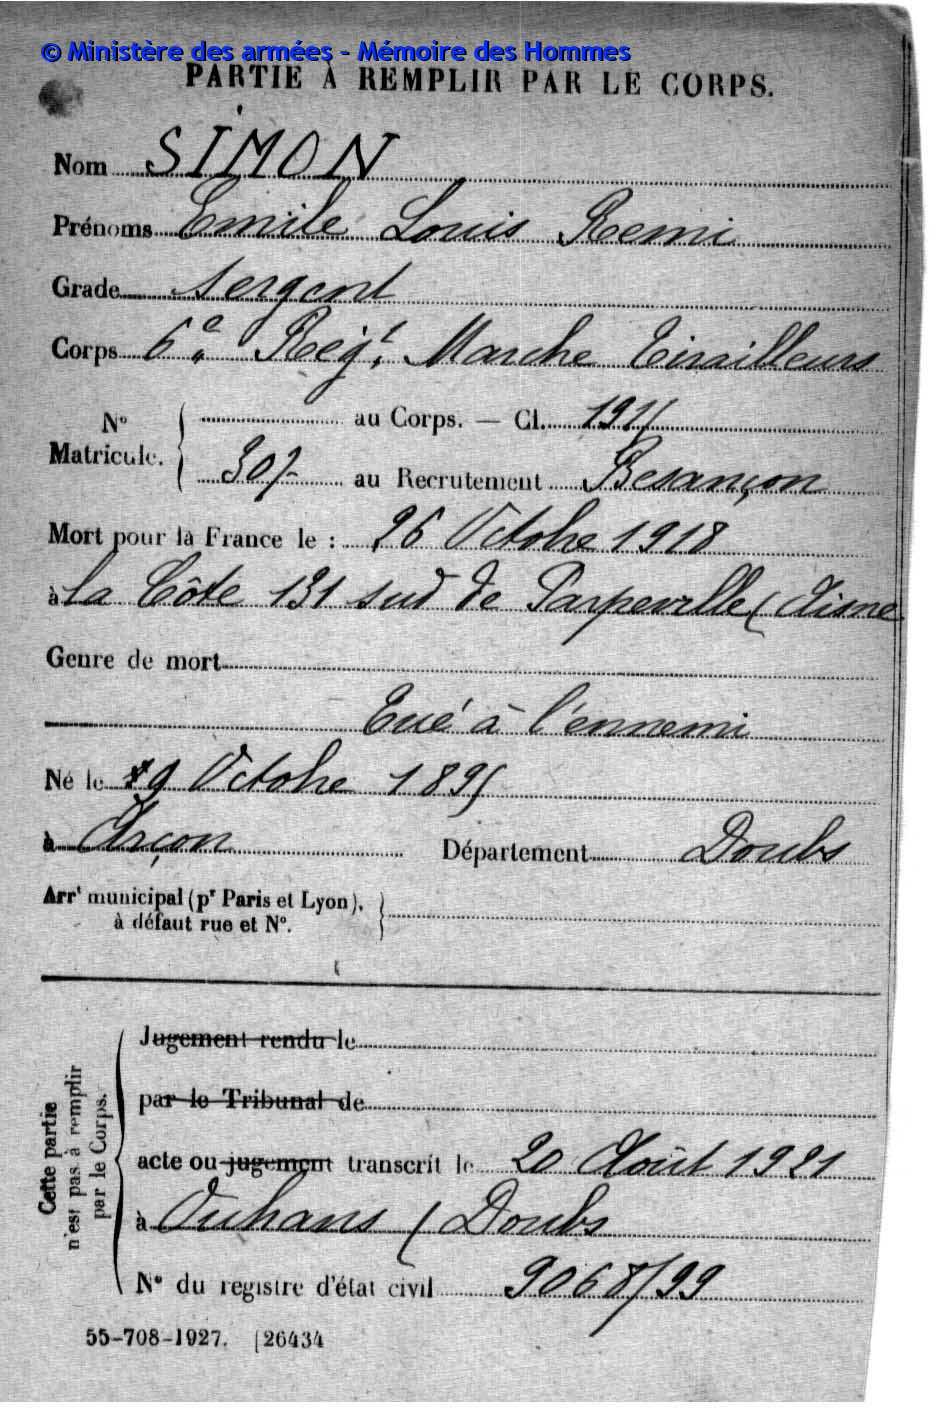 © Ministère des armées - Mémoire des Hommes
PARTIE À REMPLIR PAR LE CORPS.
Nom SIMON
Prénoms Emile Louis Remi
Grade Sergent
Corps 6e Régt Marche Tirailleurs
No au Corps. — Cl. 1915
Matricule. 307 au Recrutement Besançon
Mort pour la France le : 26 Octobre 1918
à la Côte 131 sud de Parpeville (Aisne
Genre de mort
Tué à l'ennemi
Né le 9 Octobre 1895
à Arçon Département Doubs
Arrt municipal (pr Paris et Lyon),
à défaut rue et No.
Cette partie
n'est pas à remplir
par le Corps.
Jugement rendu le
par le Tribunal de
acte ou jugement transcrit le 20 Août 1921
à Ouhans (Doubs
No du registre d'état civil 9068/99
55-708-1927. [26434